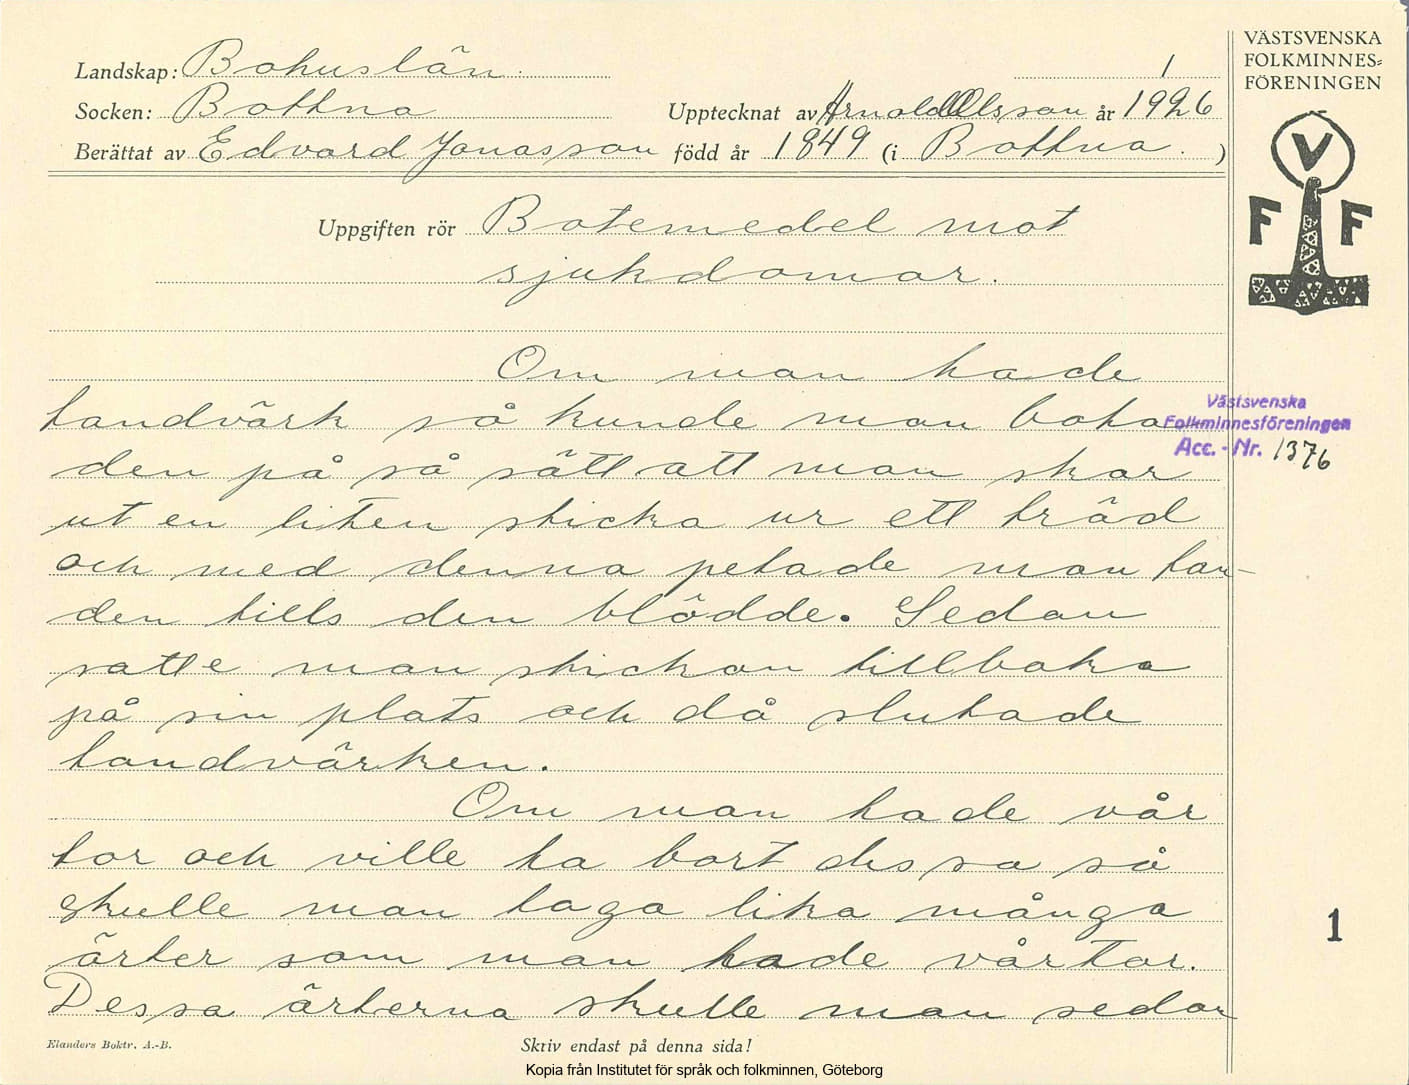 VÄSTSVENSKA
FOLKMINNES=
FÖRENINGEN
V
F F
Landskap: Bohuslän. 1
Socken: Bottna Upptecknat av Arnold Olsson år 1926
Berättat av Edvard Jonasson född år 1849 (i Bottna. )
Uppgiften rör Botemedel mot
sjukdomar.
Om man hade
tandvärk så kunde man bota
den på så sätt att man skar
ut en liten sticka ur ett träd
och med denna petade man tan-
den tills den blödde. Sedan
satte man stickan tillbaka
på sin plats och då slutade
tandvärken.
Västsvenska
Folkminnesföreningen
Acc. - Nr. 1376
Om man hade vår
tor och ville ta bort dessa så
skulle man taga lika många
ärter som man hade vårtor.
Dessa ärterna skulle man sedan
1
Elanders Boktr. A.-B.
Skriv endast på denna sida!
Kopia från Institutet för språk och folkminnen, Göteborg